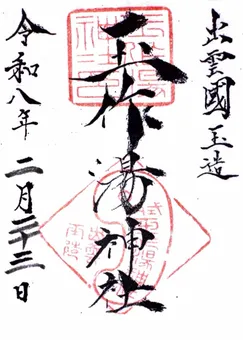 出雲國玉造
玉作湯神社
令和八年二月二十三日